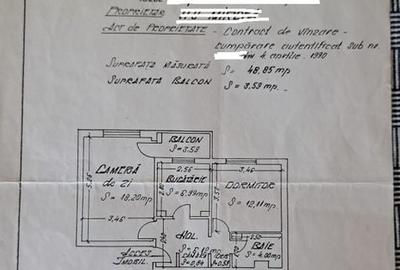 PROPRIETAR
ACT DE PROPRIETATE - Contract de vînzare -
cumpărare autentificat sub nr.
din 4 aprilie 1990
SUPRAFAȚA MĂSURATĂ S= 48,85 mp
SUPRAFAȚA BALCON S= 3.59 mp.
BALCON
S=3.59
CAMERĂ
de ZI
S= 18,20 mp
5,26
3,46
2,56
BUCĂTĂRIE
S=6,99 mp
3,46
DORMITOR
S= 12,11 mp
3,57
HOL
BAIE
S=4.00 mp
ACCES
IMOBIL
S=0,84